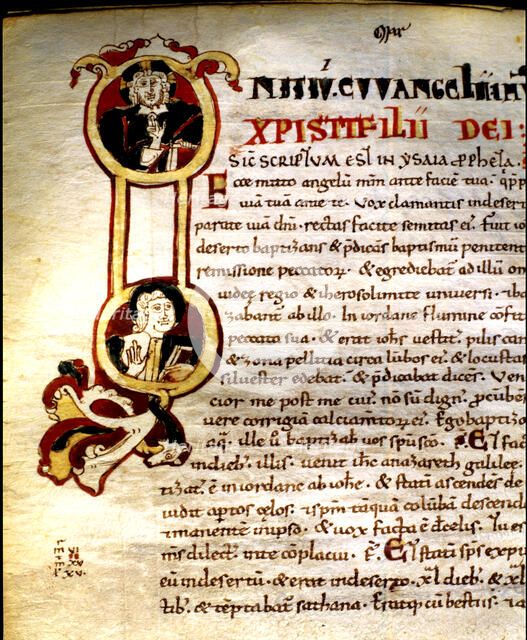 mar
INITIŪ EUUANGELII
XPISTI FILII DEI
SIC SCRIPTUM EST IN YSAIA PPHETA.
Ecce mitto angelū mm̄ ante faciē tuā. qp̄p
uiā tuā ante te. Vox clamantis indesert
parate uiā dn̄i. rectas facite semitas ei. Fuit io
deserto baptizans & p̄dicans baptismū penitent
remissione peccatoꝝ. & egrediebat ad illū on
iudeę regio & iherosolimite uniuersi. & ba
zabant ab illo. In iordane flumine cōfit
peccata sua. & erat iohs uestit. pilis cam
& zona pellitia circa lūbos ei. & locustas
siluestre edebat. & p̄dicabat dicens. Ven
cior me post me cui. nō sū dign. pcūber
uere corrigiā calciamtoꝝ ei. Ego baptizo
aq. ille ū baptizab uos sp̄u sc̄o. Est fac
indieb. illis. uenit ih̄c anazareth galilee
tizat. ē in iordane ab iohe. & statī ascendēs de
uidit aptos cęlos. & sp̄m tāquā colūbā descend
& manentē inipso. & uox facta ē decelis. Tu es
ms̄ dilect. inte cōplacui. Et statī sp̄s expu
eū indesertū. & erat indeserto. xl dieb. & xl
tib. & tēptabat sathana. Eratq; cū bestiis.